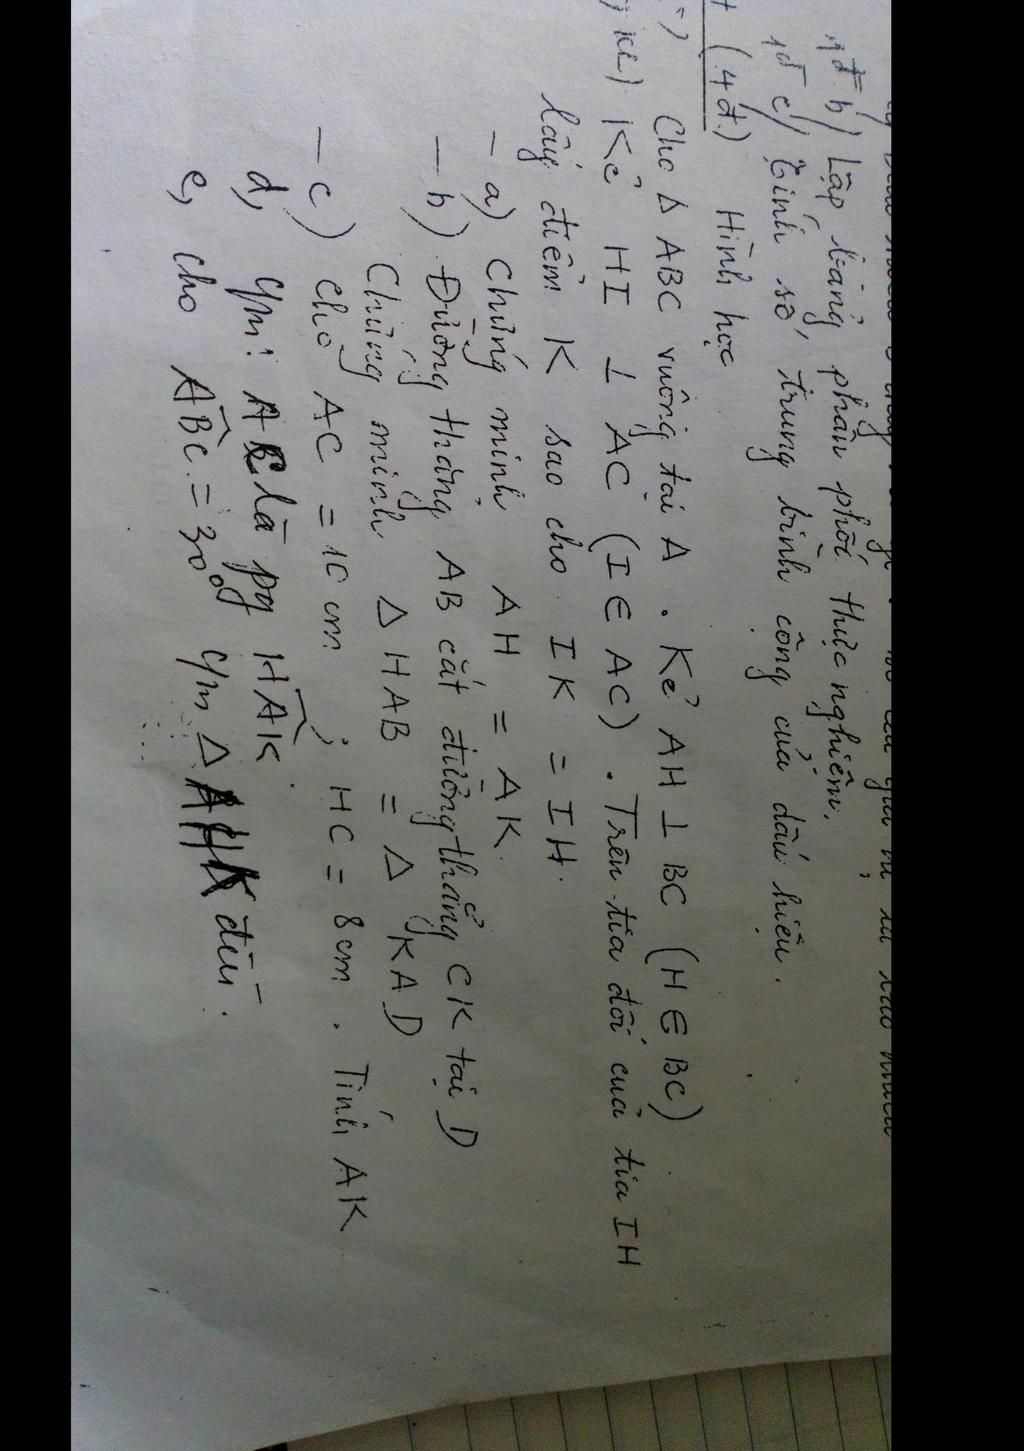 1đ b) Lập bảng phân phối thực nghiệm.
1đ c) Tính số trung bình cộng của dấu hiệu.
(4đ) Hình học
Cho Δ ABC vuông tại A. Kẻ AH ⊥ BC (H ∈ BC)
Kẻ HI ⊥ AC (I ∈ AC). Trên tia đối của tia IH
lấy điểm K sao cho IK = IH.
- a) Chứng minh AH = AK.
- b) Đường thẳng AB cắt đường thẳng CK tại D
Chứng minh Δ HAB = Δ KAD
- c) Cho AC = 10 cm; HC = 8 cm. Tính AK
d, C/m: AC là pg HAK.
e, cho ABC = 30° C/m Δ AHK đều.